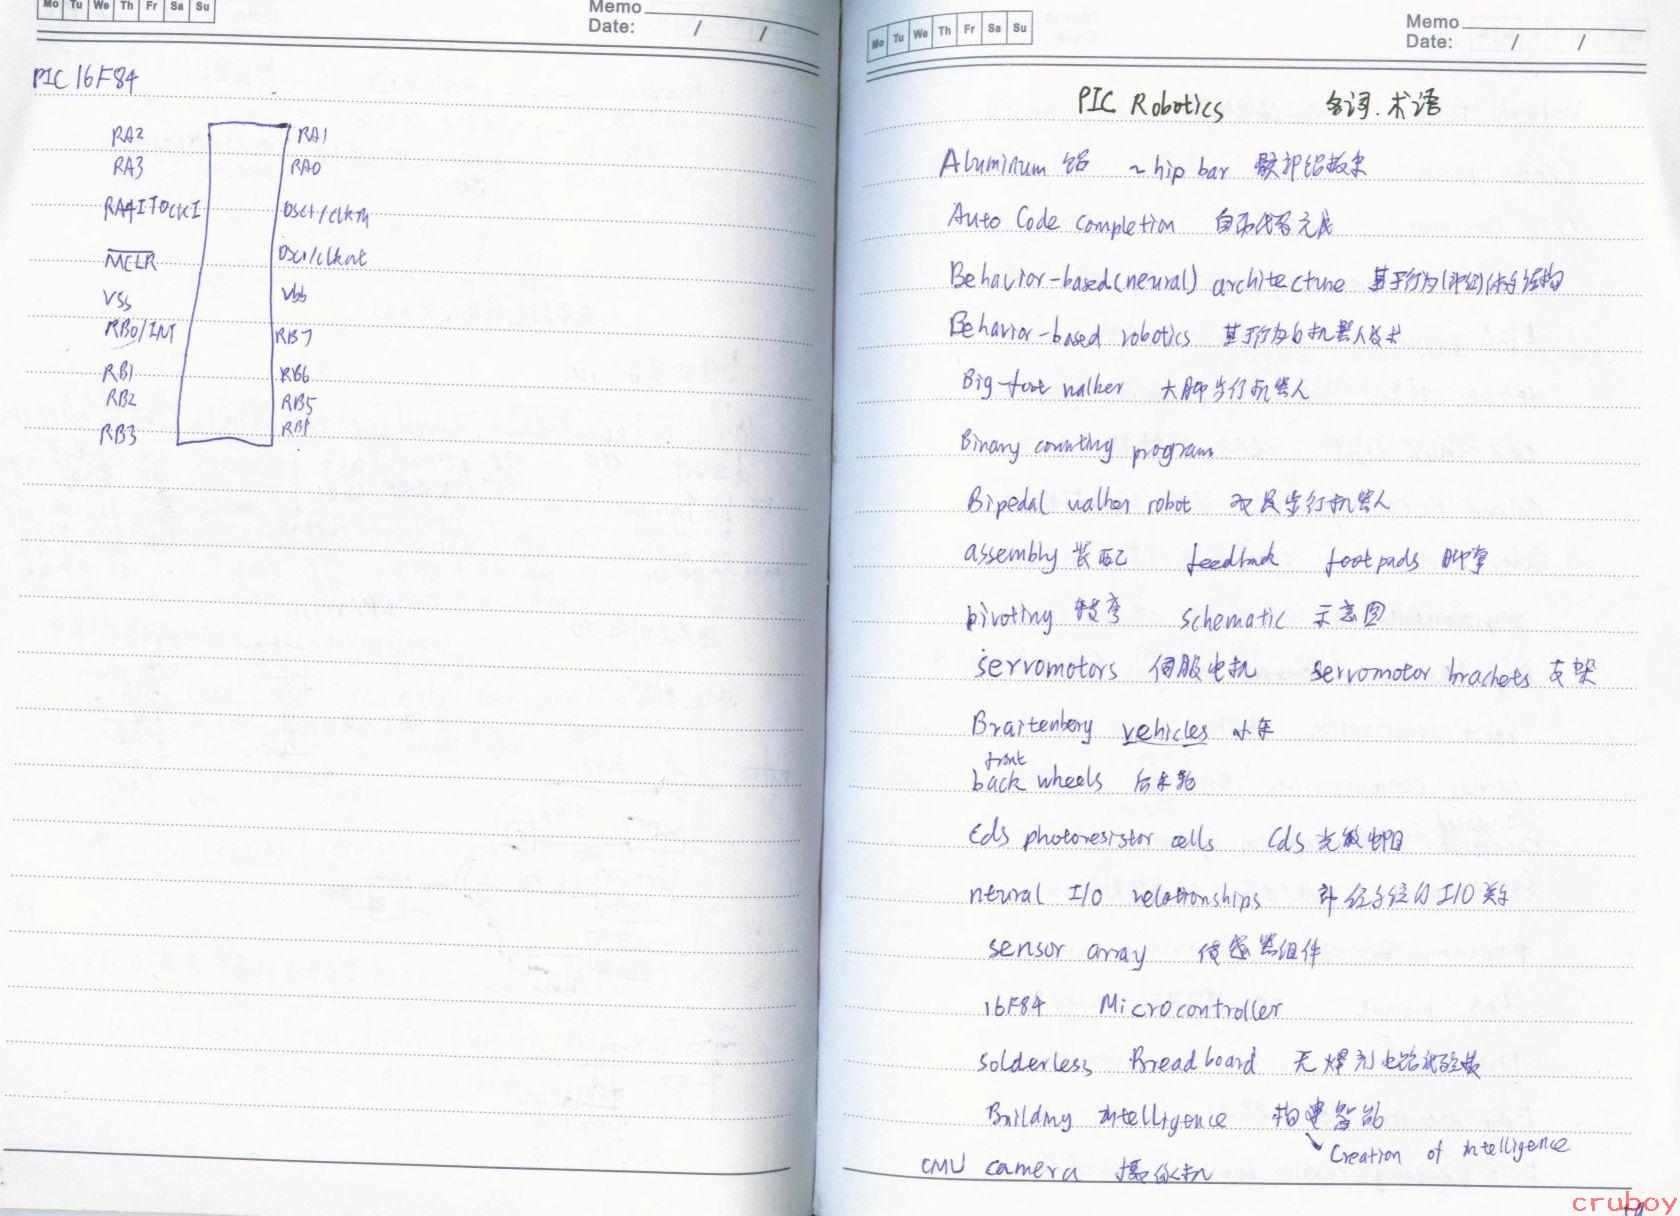 Mo Tu We Th Fr Sa Su
Memo
Date: / /
PIC 16F84
RA2 RA1
RA3 RA0
RA4/TOCKI OSC1/clkin
MCLR
VSS
RB0/INT RB7
RB1 RB6
RB2 RB5
RB3
Mo Tu We Th Fr Sa Su
Memo
Date: / /
PIC Robotics 名词.术语
Aluminum 铝 ~hip bar 髋部铝板条
Auto Code completion 自动代码完成
Behavior-based(neural) architecture 基于行为(神经)体系结构
Behavior-based robotics 基于行为的机器人技术
Big-foot walker 大脚步行机器人
Binary counting program
Bipedal walker robot 双足步行机器人
assembly 装配 feedback footpads 脚掌
pivoting 转弯 schematic 示意图
servomotors 伺服电机 servomotor brackets 支架
Braitenberg vehicles 小车
front
back wheels 后车轮
Cds photoresistor cells Cds 光敏电阻
neural I/O relationships I/O 关系
sensor array 传感器组件
16F84 Microcontroller
Solderless Breadboard 无焊剂电路试验板
Building intelligence 构建智能
Creation of intelligence
CMU camera 摄像机
cruboy